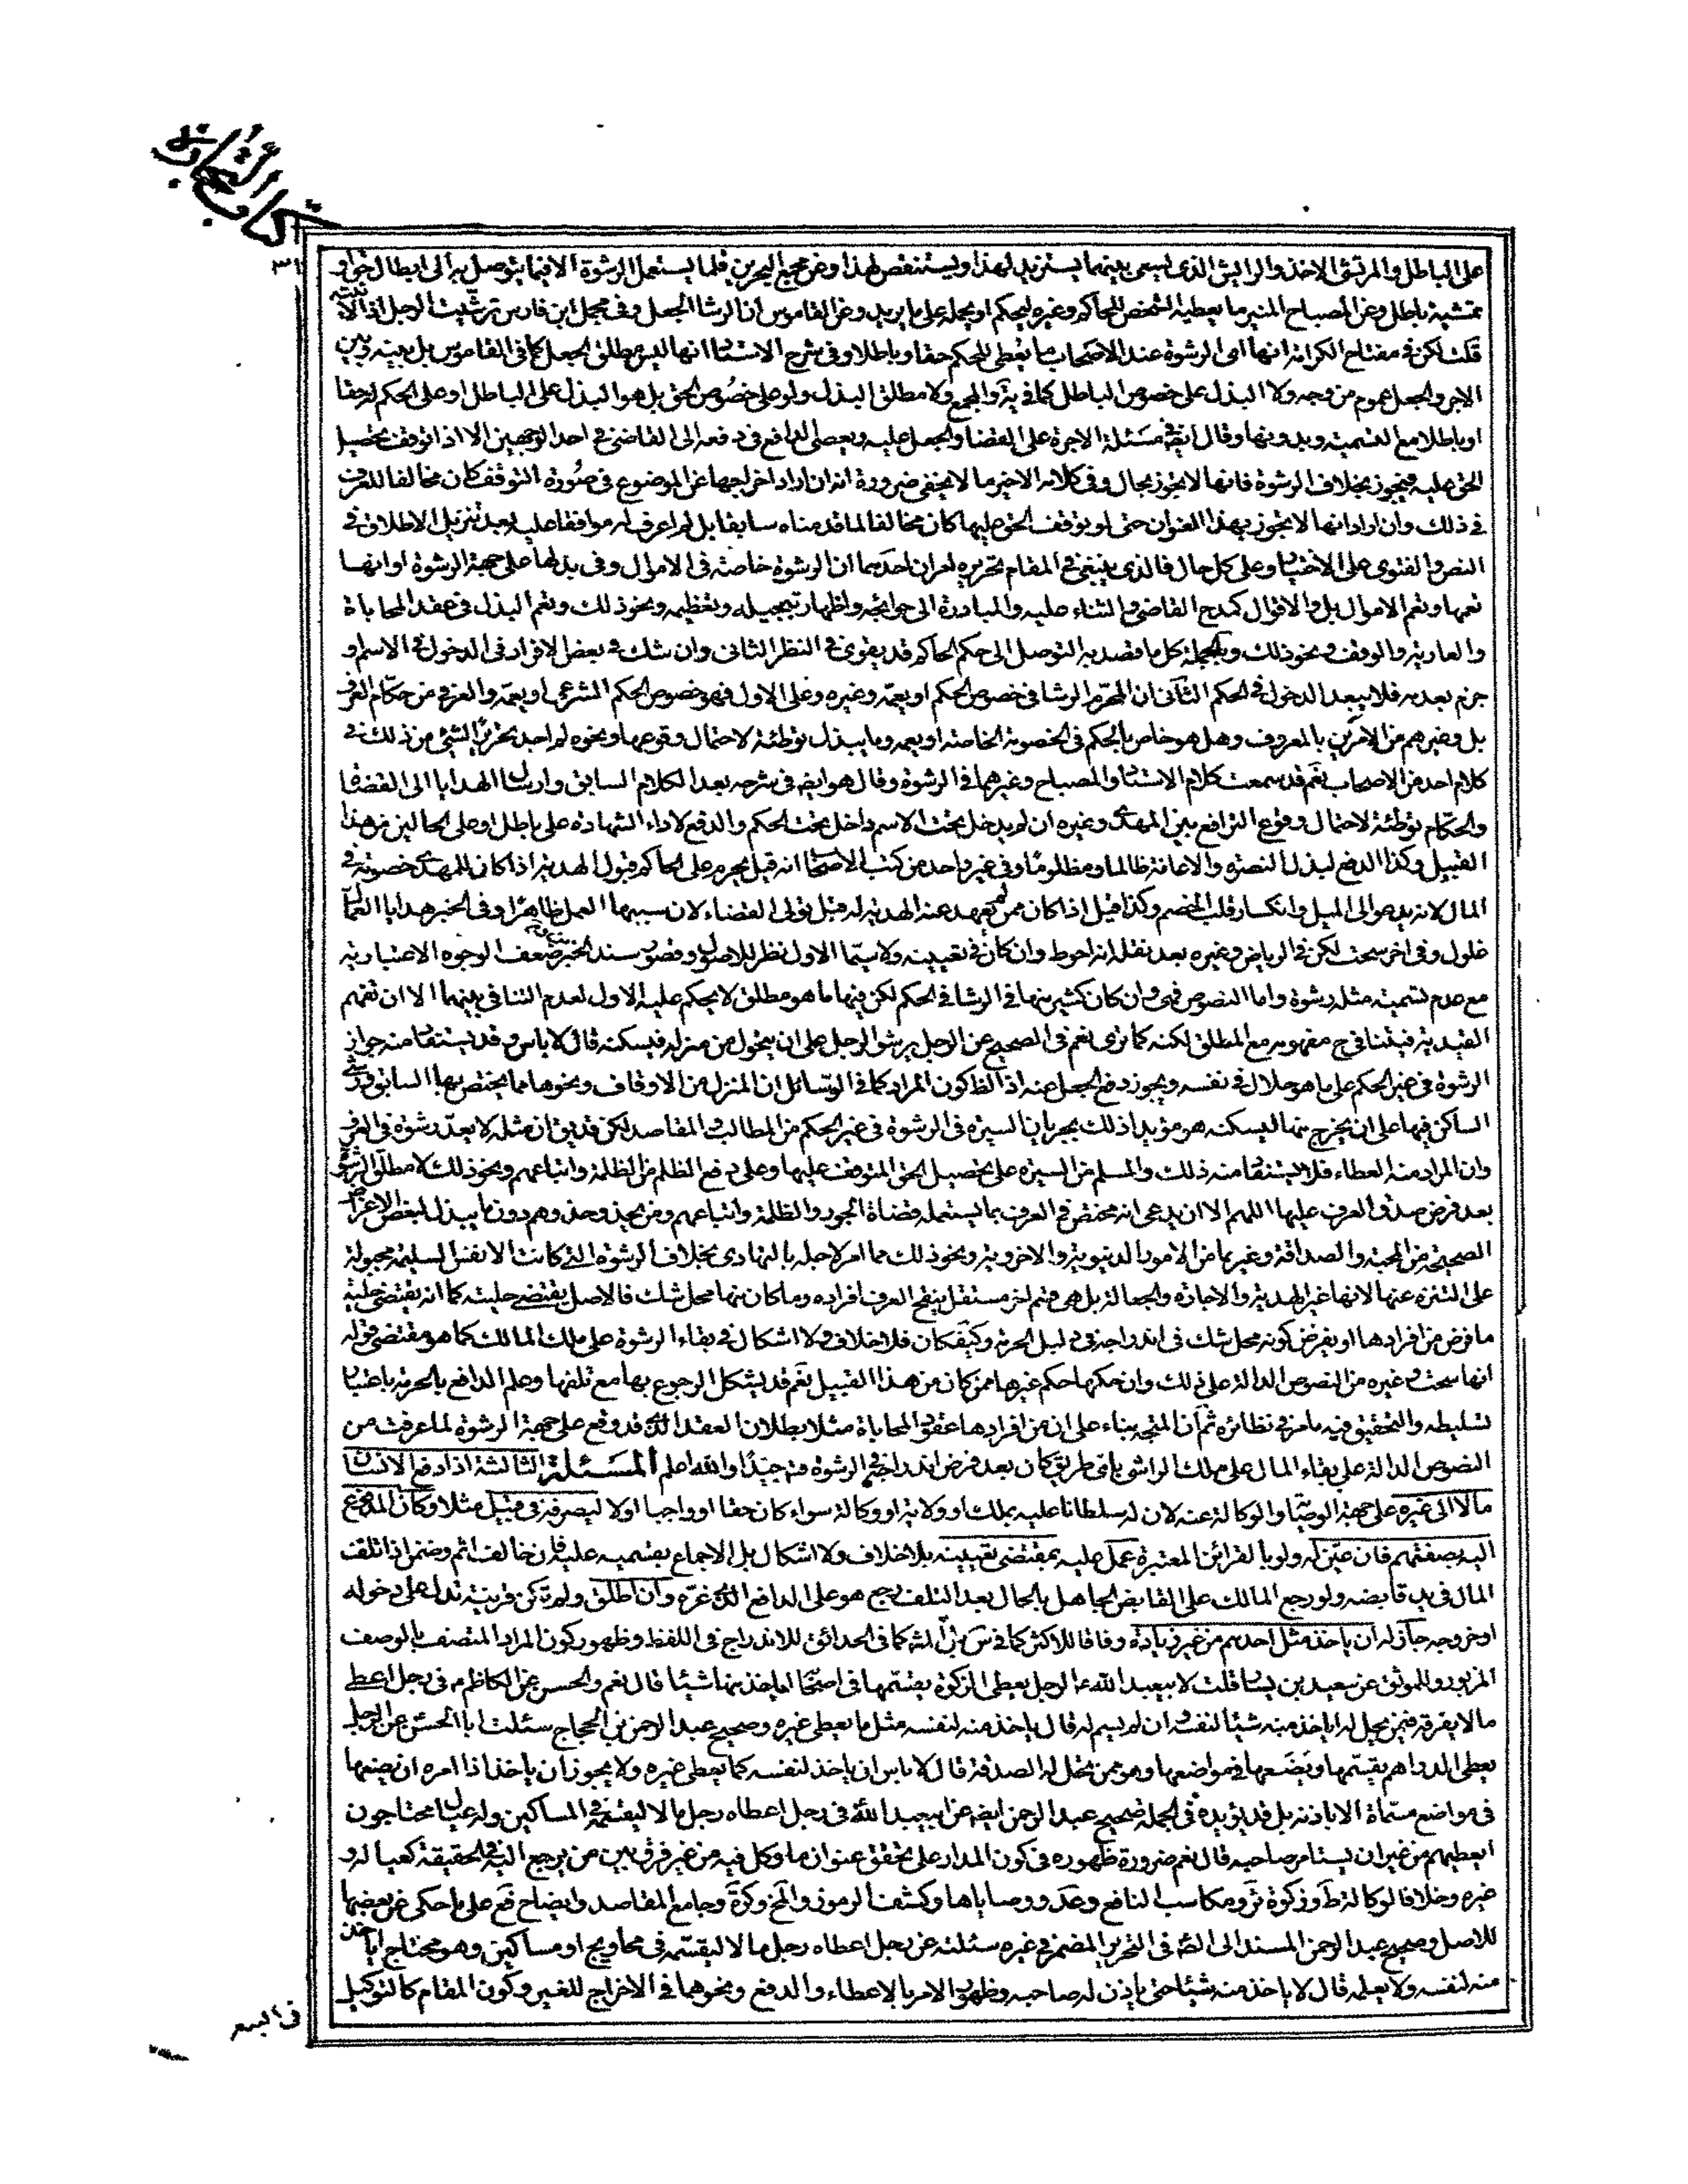 كتاب التجارة
٣١
على الباطل والمرتشي الاخذ والرايش الذي يسعى بينهما يستزيد لهذا ويستنقص لهذا وعن مجمع البحرين قلما يستعمل الرشوة الا فيما يتوصل به الى ابطال حق او
تمشية باطل وعن المصباح المنير ما يعطيه الشخص للحاكم وغيره ليحكم له او يحمله على ما يريد وعن القاموس ان الرشا الجعل وفي مجمل ابن فارس ترشيت الرجل اذا لاينته
قلت لكن في مفتاح الكرامة انها اى الرشوة عند الاصحاب ما يعطى للحكم حقا او باطلا وفي شرح الاستاد انها ليس مطلق الجعل كما في القاموس بل بينه وبين
الاجر والجعل عموم من وجه ولا البذل على خصوص الباطل كما في يه والمجمع ولا مطلق البذل ولو على خصوص الحق بل هو البذل على الباطل او على الحكم له حقا
او باطلا مع التسمية وبدونها وقال ايضا في مسئلة الاجرة على القضا والجعل عليه ويعصى الدافع في دفعه الى القاضي في احد الوجهين الا اذا توقف تحصيل
الحق عليه فيجوز بخلاف الرشوة فانها لا تجوز بحال وفي كلامه الاخير ما لا يخفى ضرورة انه ان اراد اخراجها عن الموضوع في صورة التوقف كان مخالفا للعرف
في ذلك وان اراد انها لا تجوز بهذا العنوان حتى لو توقف الحق عليها كان مخالفا لما قدمناه سابقا بل لم اعرف له موافقا عليه لبعد تنزيل الاطلاق في
النص والفتوى على الاختيار وعلى كل حال فالذي ينبغي في المقام تحريره امران احدهما ان الرشوة خاصة في الاموال وفي بذلها على جهة الرشوة او انها
تعمها وتعم الاموال بل والاقوال كمدح القاضي والثناء عليه والمبادرة الى حوائجه واظهار تبجيله وتعظيمه ونحو ذلك وتعم البذل في عقد المحاباة
والعارية والوقف ونحو ذلك وبالجملة كل ما قصد به التوصل الى حكم الحاكم قد يقوى في النظر الثانى وان شك في بعض الافراد في الدخول في الاسم و
جزم بعدمه فلا يبعد الدخول في الحكم الثاني ان المحرم الرشا في خصوص الحكم او يعمه وغيره وعلى الاول فهو خصوص الحكم الشرعى او يعمه والعرفي من حكام العرف
بل وغيرهم من الآمرين بالمعروف وهل هو خاص بالحكم في الخصومة الخاصة او يعمه وما يبذل توطئة لاحتمال وقوعها ونحوه لم اجد تحريرا لشئ من ذلك في
كلام احد من الاصحاب نعم قد سمعت كلام الاستاد والمصباح وغيرهما في الرشوة وقال هو ايضا في شرحه بعد الكلام السابق وارسال الهدايا الى القضاة
والحكام توطئة لاحتمال وقوع الترافع بين المهدى وغيره ان لم يدخل تحت الاسم داخل تحت الحكم والدفع لاداء الشهادة على باطل او على الحالين من هذا
القبيل وكذا الدفع لبذل النصرة والاعانة ظالما ومظلوما وفي غير واحد من كتب الاصحاب انه قيل يحرم على الحاكم قبول الهدية اذا كان للمهدي خصومة في
المال لانه يدعو الى الميل وانكسار قلب الخصم وكذا قيل اذا كان ممن لم يعهد عنه الهدية له قبل تولى القضاء لان سببها العمل ظاهرا وفي الخبر هدايا العمال
غلول وفي اخر سحت لكن في الرياض وغيره بعد نقله انه احوط وان كان في تعيينه ولا سيما الاول نظر للاصل وقصور سند الخبر وضعف الوجوه الاعتبارية
مع عدم تسمية مثله رشوة واما النصوص فهى وان كان كثير منها في الرشا في الحكم لكن فيها ما هو مطلق لا يحكم عليه الاول لعدم التنافي بينهما الا ان تفهم
القيدية فيتنافى ح مفهومه مع المطلق لكنه كما ترى نعم في الصحيح عن الرجل يرشو الرجل على ان يتحول من منزله فيسكنه قال لا باس وقد يستفاد منه جواز
الرشوة في غير الحكم على ما هو حلال في نفسه ويجوز دفع الجعل عنه اذ الظ كون المراد كما في الوسائل ان المنزل من الاوقاف ونحوها مما يختص بها السابق
الساكن فيها على ان يخرج منها ليسكنه هو مؤيدا ذلك بجريان السيرة في الرشوة في غير الحكم من المطالب والمقاصد لكن قد يق ان مثله لا يعد رشوة في العرف
وان المراد منه العطاء فلا يستفاد منه ذلك والمسلم من السيرة على تحصيل الحق المتوقف عليها وعلى دفع الظلم من الظلمة واتباعهم ونحو ذلك لا مطلق الرشوة
بعد فرض صدق العرف عليها اللهم الا ان يدعى انه مختص في العرف بما يستعمله قضاة الجور والظلمة واتباعهم ومن يحذو حذوهم دون ما يبذل لبعض الاغراض
الصحيحة من المحبة والصداقة وغيرهما من الامور الدنيوية والاخروية ونحو ذلك مما امر لاجله بالتهادى بخلاف الرشوة التي كانت الانفس السليمة مجبولة
على التنزه عنها لانها غير الهدية والاجارة والجعالة بل هي قسم اخر مستقل ينقح العرف افراده وما كان منها محل شك فالاصل يقتضى حليته كما انه يقتضى حلية
ما فرض من افرادها او يفرض كونه محل شك في اندراجه في دليل الحرمة وكيف كان فلا خلاف ولا اشكال في بقاء الرشوة على ملك المالك كما هو مقتضى قوله
انها سحت وغيره من النصوص الدالة على ذلك وان حكمها حكم غيرها ممن كان من هذا القبيل نعم قد يشكل الرجوع بها مع تلفها وعلم الدافع بالحرمة باعتبار
تسليطه والتحقيق فيه ما مر في نظائره ثم ان المتجه بناء على ان من افرادها عقود المحاباة مثلا بطلان العقد الذي قد وقع على جهة الرشوة لما عرفت من
النصوص الدالة على بقاء المال على ملك الراشى باى طريق كان بعد فرض اندراجه في الرشوة فت جيدا والله اعلم المسئلة الثالثة اذا دفع الانسان
مالا الى غيره على جهة الوصاية او الوكالة عنه لان له سلطانا عليه بملك او ولاية او وكالة سواء كان حقا او واجبا اولا ليصرفه في قبيل مثلا وكان المدفوع
اليه بصفتهم فان عين له ولو بالقرائن المعتبرة عمل عليه بمقتضى تعيينه بلا خلاف ولا اشكال بل الاجماع بقسميه عليه فان خالف اثم وضمن اذا تلف
المال في يد قابضه ولو رجع المالك على القابض الجاهل بالحال بعد التلف رجع هو على الدافع الذي غره وان اطلق ولم تكن قرينة تدل على دخوله
او خروجه جاز له ان ياخذ مثل احدهم من غير زيادة وفاقا للاكثر كما في س بل المش كما في الحدائق للاندراج في اللفظ وظهور كون المراد المتصف بالوصف
المزبور وللموثق عن سعيد بن يسار قلت لابيعبد الله ع الرجل يعطى الزكوة يقسمها في اصحابه اياخذ منها شيئا قال نعم والحسن عن الكاظم ع في رجل اعطى
مالا يفرقه فيمن يحل له اياخذ منه شيئا لنفسه وان لم يسم له قال ياخذ منه لنفسه مثل ما يعطى غيره وصحيح عبد الرحمن بن الحجاج سئلت ابا الحسن عن الرجل
يعطى الدراهم يقسمها ويضعها في مواضعها وهو ممن تحل له الصدقة قال لا باس ان ياخذ لنفسه كما يعطى غيره ولا يجوز ان ياخذ اذا امره ان يضعها
في مواضع مسماة الا باذنه بل قد يؤيده في الجملة صحيح عبد الرحمن ايضا عن ابيعبد الله في رجل اعطاه رجل مالا ليقسمه في المساكين وله عيال محتاجون
ايعطيهم من غير ان يستامر صاحبه قال نعم ضرورة ظهوره في كون المدار على تحقق عنوان ما وكل فيه من غير فرق بين من يرجع اليه في الحقيقة كعياله و
غيره وخلافا لوكالة ط وزكوة ئر ومكاسب النافع وعد ووصاياها وكشف الرموز والمخ وكرة وجامع المقاصد وايضاح فع على ما حكى عن بعضها
للاصل وصحيح عبد الرحمن المسند الى الص في التحرير المضمر في غيره سئلته عن رجل اعطاه رجل مالا ليقسمه في محاويج او مساكين وهو محتاج اياخذ
منه لنفسه ولا يعلمه قال لا ياخذ منه شيئا حتى ياذن له صاحبه وظهور الامر بالاعطاء والدفع ونحوهما في الاخراج للغير وكون المقام كالتوكيل
في البيع